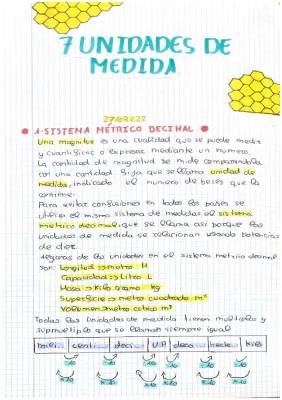 7 UNIDADES DE
MEDIDA
1-SISTEMA MÉTRICO DECIMAL
Una magnitud es una cualidad que se puede medir
y cuantificar o expresar mediante un numero.
La cantidad de magnitud se mide comparandola
con una cantidad fija que se llama unidad de
medida, indicado el numero de beces que la
contiene.
Para evitar confusiones en todos los paises se
utiliza el mismo sistema de medidas el sistema
metrico decimal, que se llama asi porque las
unidades de medida se relacionan usando potencias
de diez.
Algunas de las unidades en el sistema metrico decimal
son: Longitud → metro M
Capacidad → Litro L
Masa → kilo gramo kg
Superficie → metro cuadrado m²
Volumen → metro cubico m³
Todas las unidades de medida tienen multiplos y
submultiplos que se llaman siempre igual
mili centi deci U.P deca hecto kilo
:10 :10 :10 :10 :10 :10
x10 x10 x10 x10 x10 x10